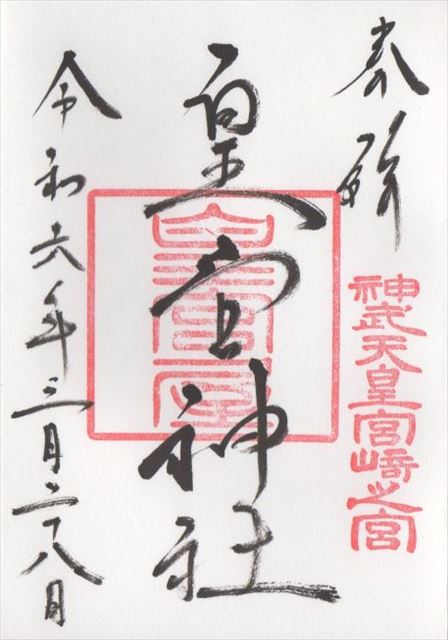 奉拝
神武天皇宮崎之宮
皇宮神社
令和六年三月二十八日